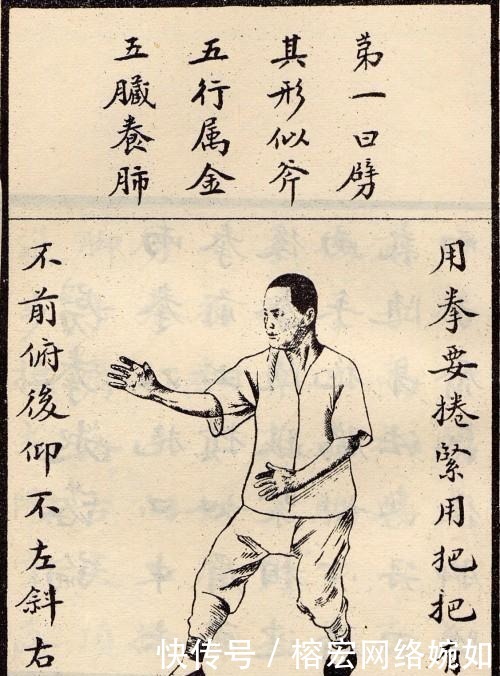 第一曰劈
其形似斧
五行属金
五臟養肺
用拳要捲緊用把把有
不前俯後仰不左斜右
快传号 / 榕宏网络婉如